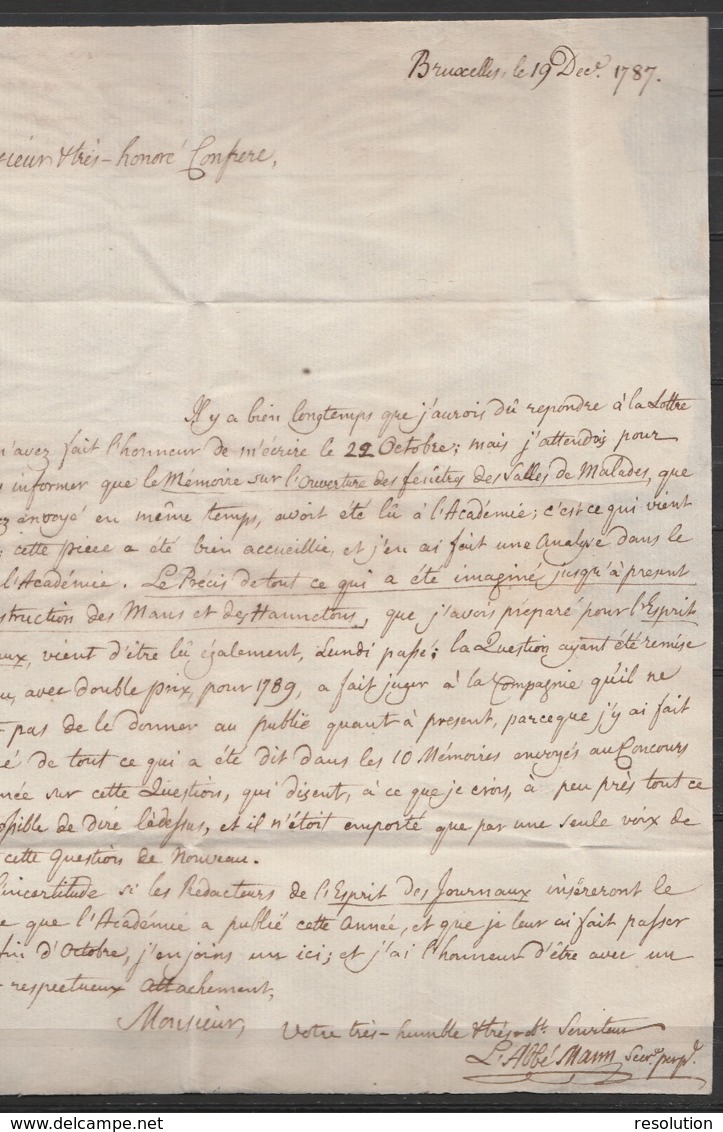 Bruxelles, le 19 Decr. 1787.
sieur & très-honoré Confrere,
Il y a bien longtemps que j'aurois dû repondre à la Lettre
m'avez fait l'honneur de m'écrire le 22 Octobre; mais j'attendois pour
informer que le Mémoire sur l'Ouverture des fenêtres des Salles de Malades, que
envoyé en même temps, avoit été lû à l'Académie; c'est ce qui vient
cette piece a été bien accueillie, et j'en ai fait une Analyse dans le
l'Académie. Le Précis de tout ce qui a été imaginé jusqu'à present
struction des Mans et des Hannetons, que j'avois préparé pour l'Esprit
aux, vient d'être lû également, Lundi passé: la Question ayant été remise
avec double prix, pour 1789, a fait juger à la Compagnie qu'il ne
pas de le donner au public quant à présent, parceque j'y ai fait
é de tout ce qui a été dit dans les 10 Mémoires envoyés au Concours
née sur cette Question, qui disent, à ce que je crois, à peu près tout ce
ossible de dire làdessus, et il n'étoit emporté que par une seule voix de
cette question de Nouveau.
l'incertitude si les Rédacteurs de l'Esprit des Journaux inséreront le
que l'Académie a publié cette Année, et que je leur ai fait passer
fin d'Octobre, j'en joins un ici; et j'ai l'honneur d'être avec un
respectueux Attachement,
Monsieur,
Votre très-humble & très-obt. Serviteur
L'Abbé Mann Secre. perpl.
© www.delcampe.net
resolution
resolution